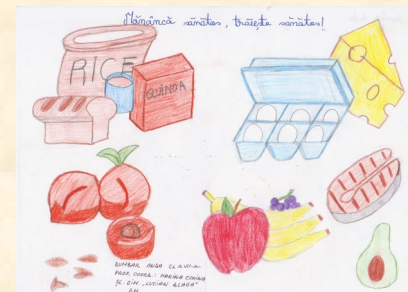 Mănâncă sănătos, trăiește sănătos!
RICE
QUINOA
PROF. COORD.: MARINA CORINA
ȘC. GIM. „LUCIAN BLAGA”